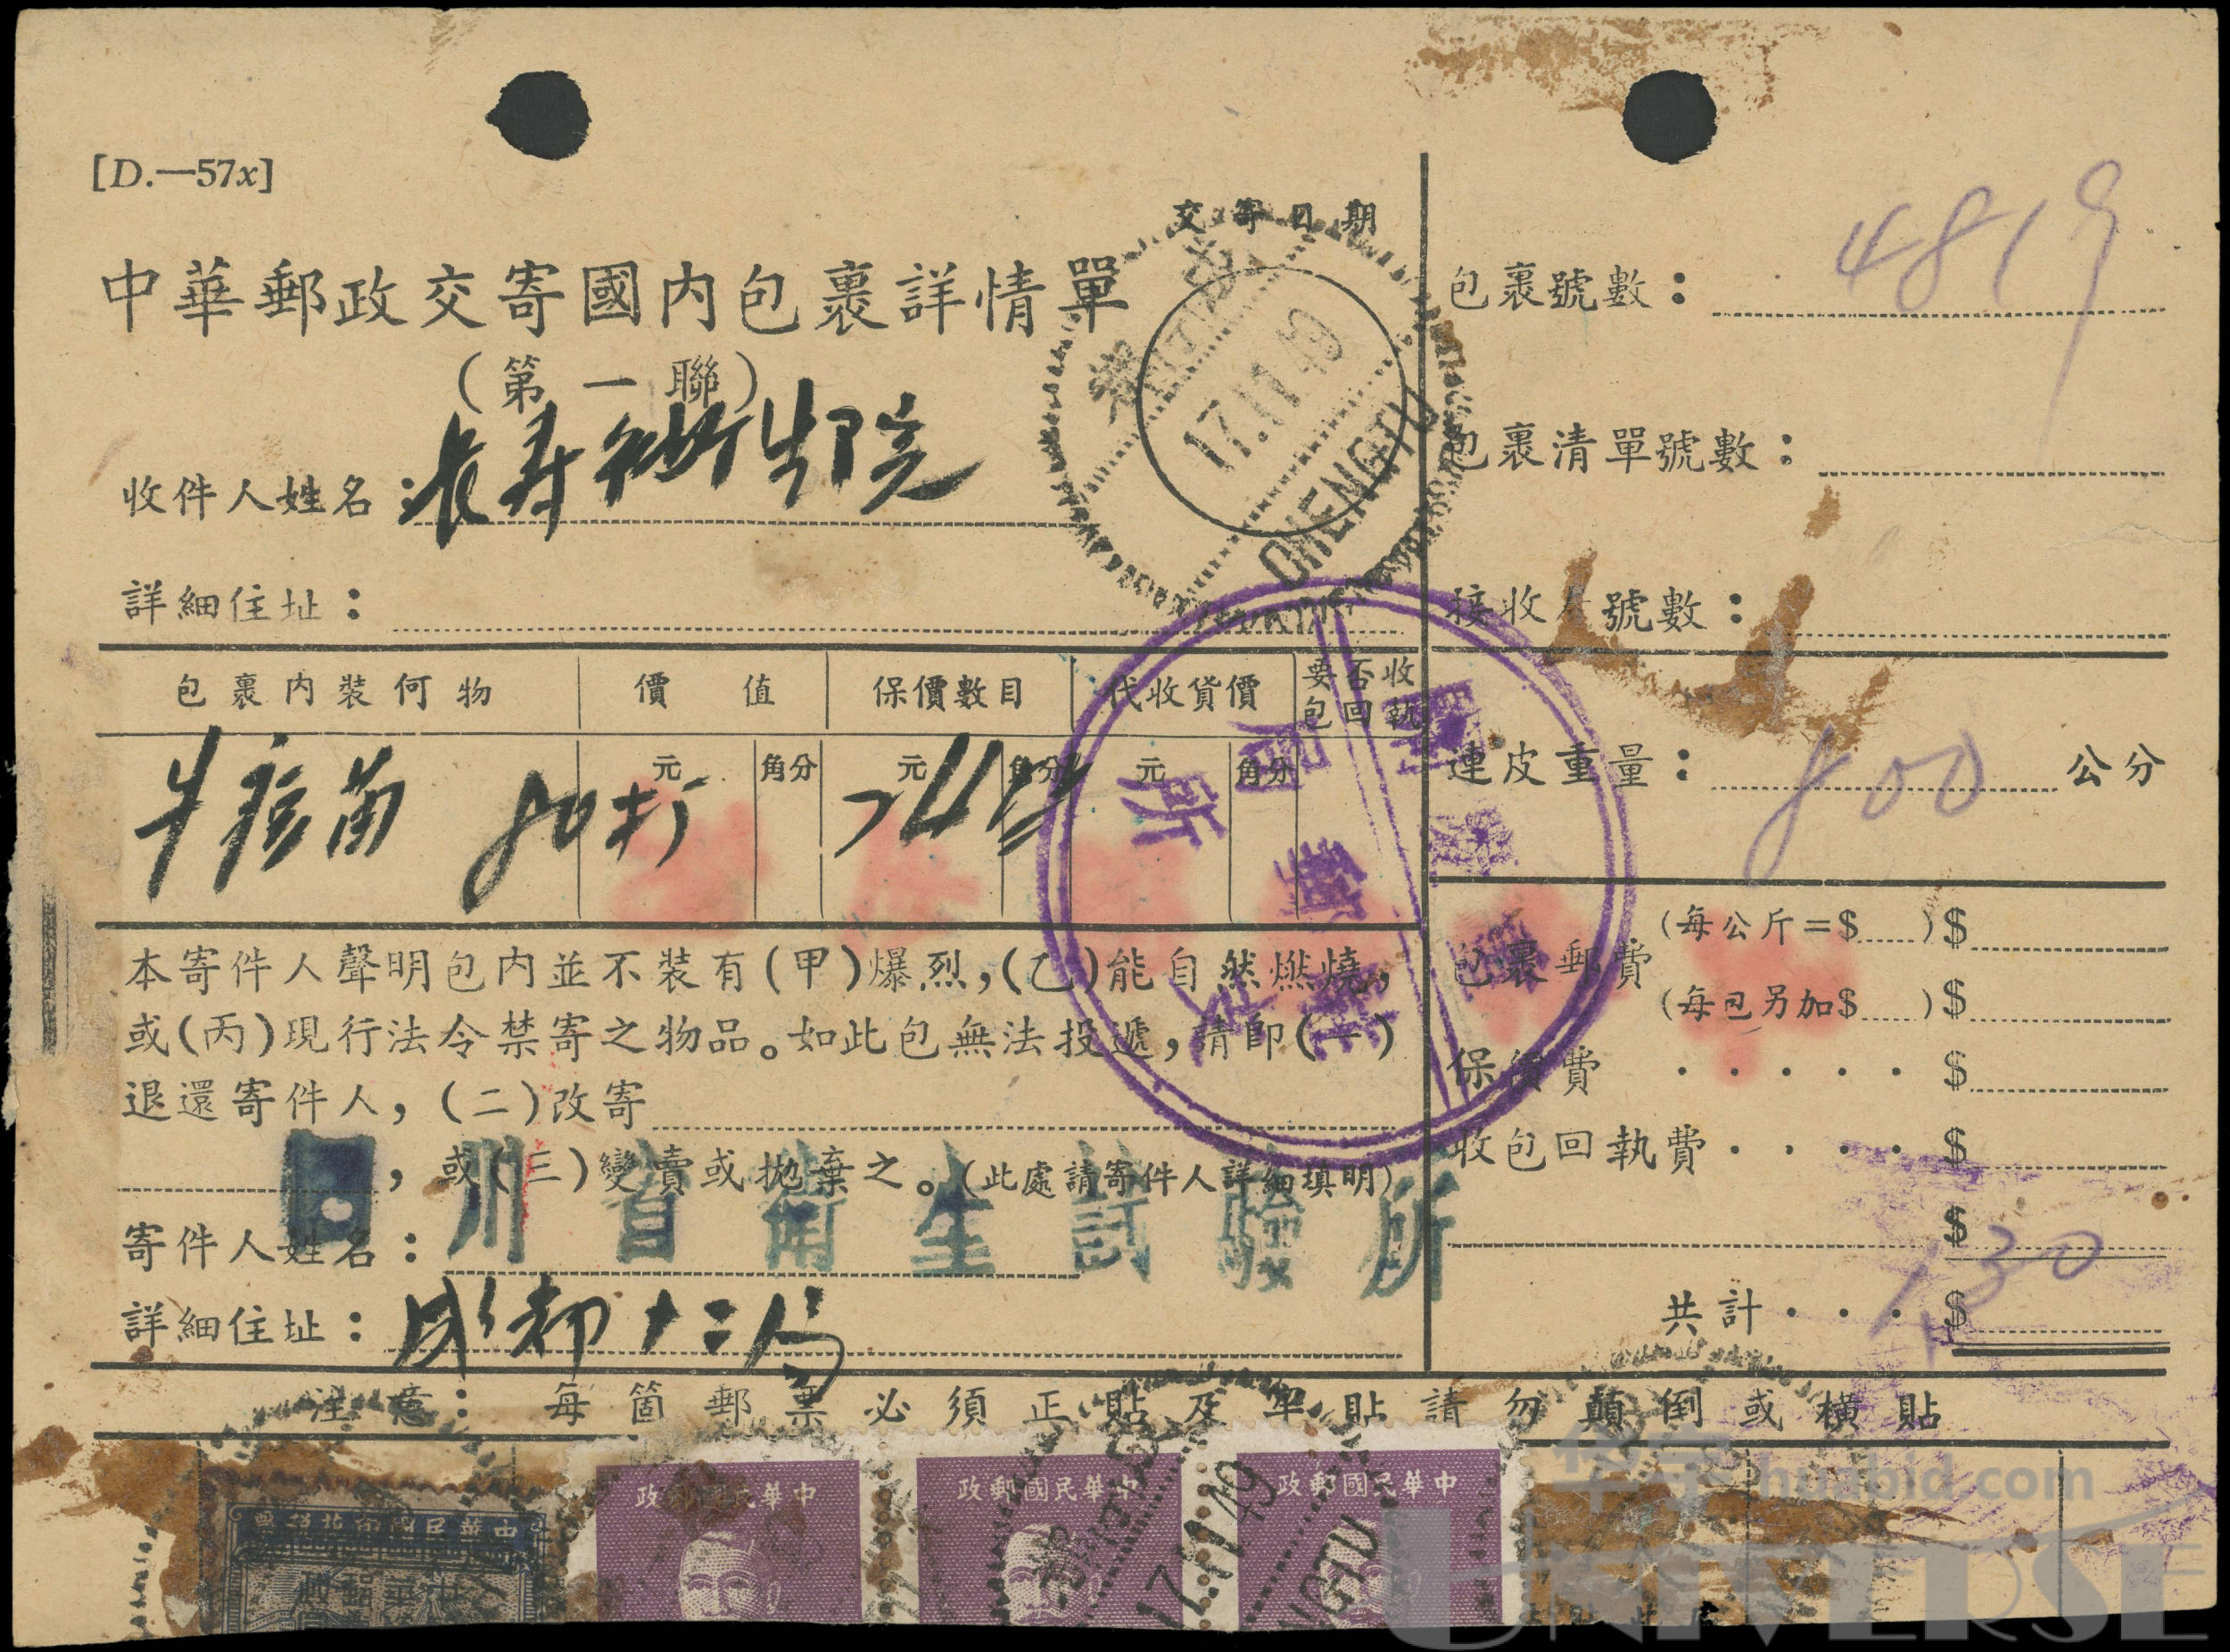 [D.—57x]
交寄日期
中華郵政交寄國內包裹詳情單
(第一聯)
17.11.49
CHENGTU
包裹號數：4819
包裹清單號數：
收件人姓名：長壽衛生院
詳細住址：
接收局號數：
包裹內裝何物 價值 保價數目 代收貨價 要否收包回執
元 角分 元 角分 元 角分
牛痘苗 80打
連皮重量：800公分
本寄件人聲明包內並不裝有(甲)爆烈，(乙)能自然燃燒，
或(丙)現行法令禁寄之物品。如此包無法投遞，請卽(一)
退還寄件人，(二)改寄
，或(三)變賣或拋棄之。(此處請寄件人詳細填明)
包裹郵費 (每公斤=$ )$
(每包另加$ )$
保價費 · · · · · $
收包回執費 · · · · $
$
共計 · · · $
130
寄件人姓名：
川省衛生試驗所
詳細住址：成都
注意：每箇郵票必須正貼及單貼請勿顛倒或橫貼
政郵國民華中
政郵國民華中
政郵國民華中
17.11.49
华宇 huabid.com
UNIVERSE